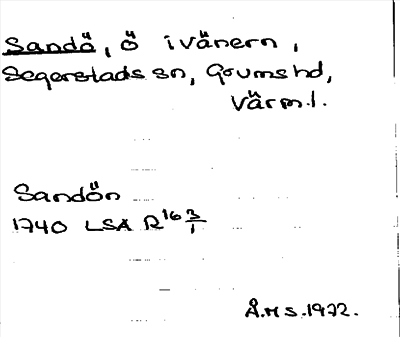 Sandö, ö i vänern,
Segerstads sn, Grums hd,
Värml.
Sandön
1740 LSA R16 3/1
Å.H S. 1972.